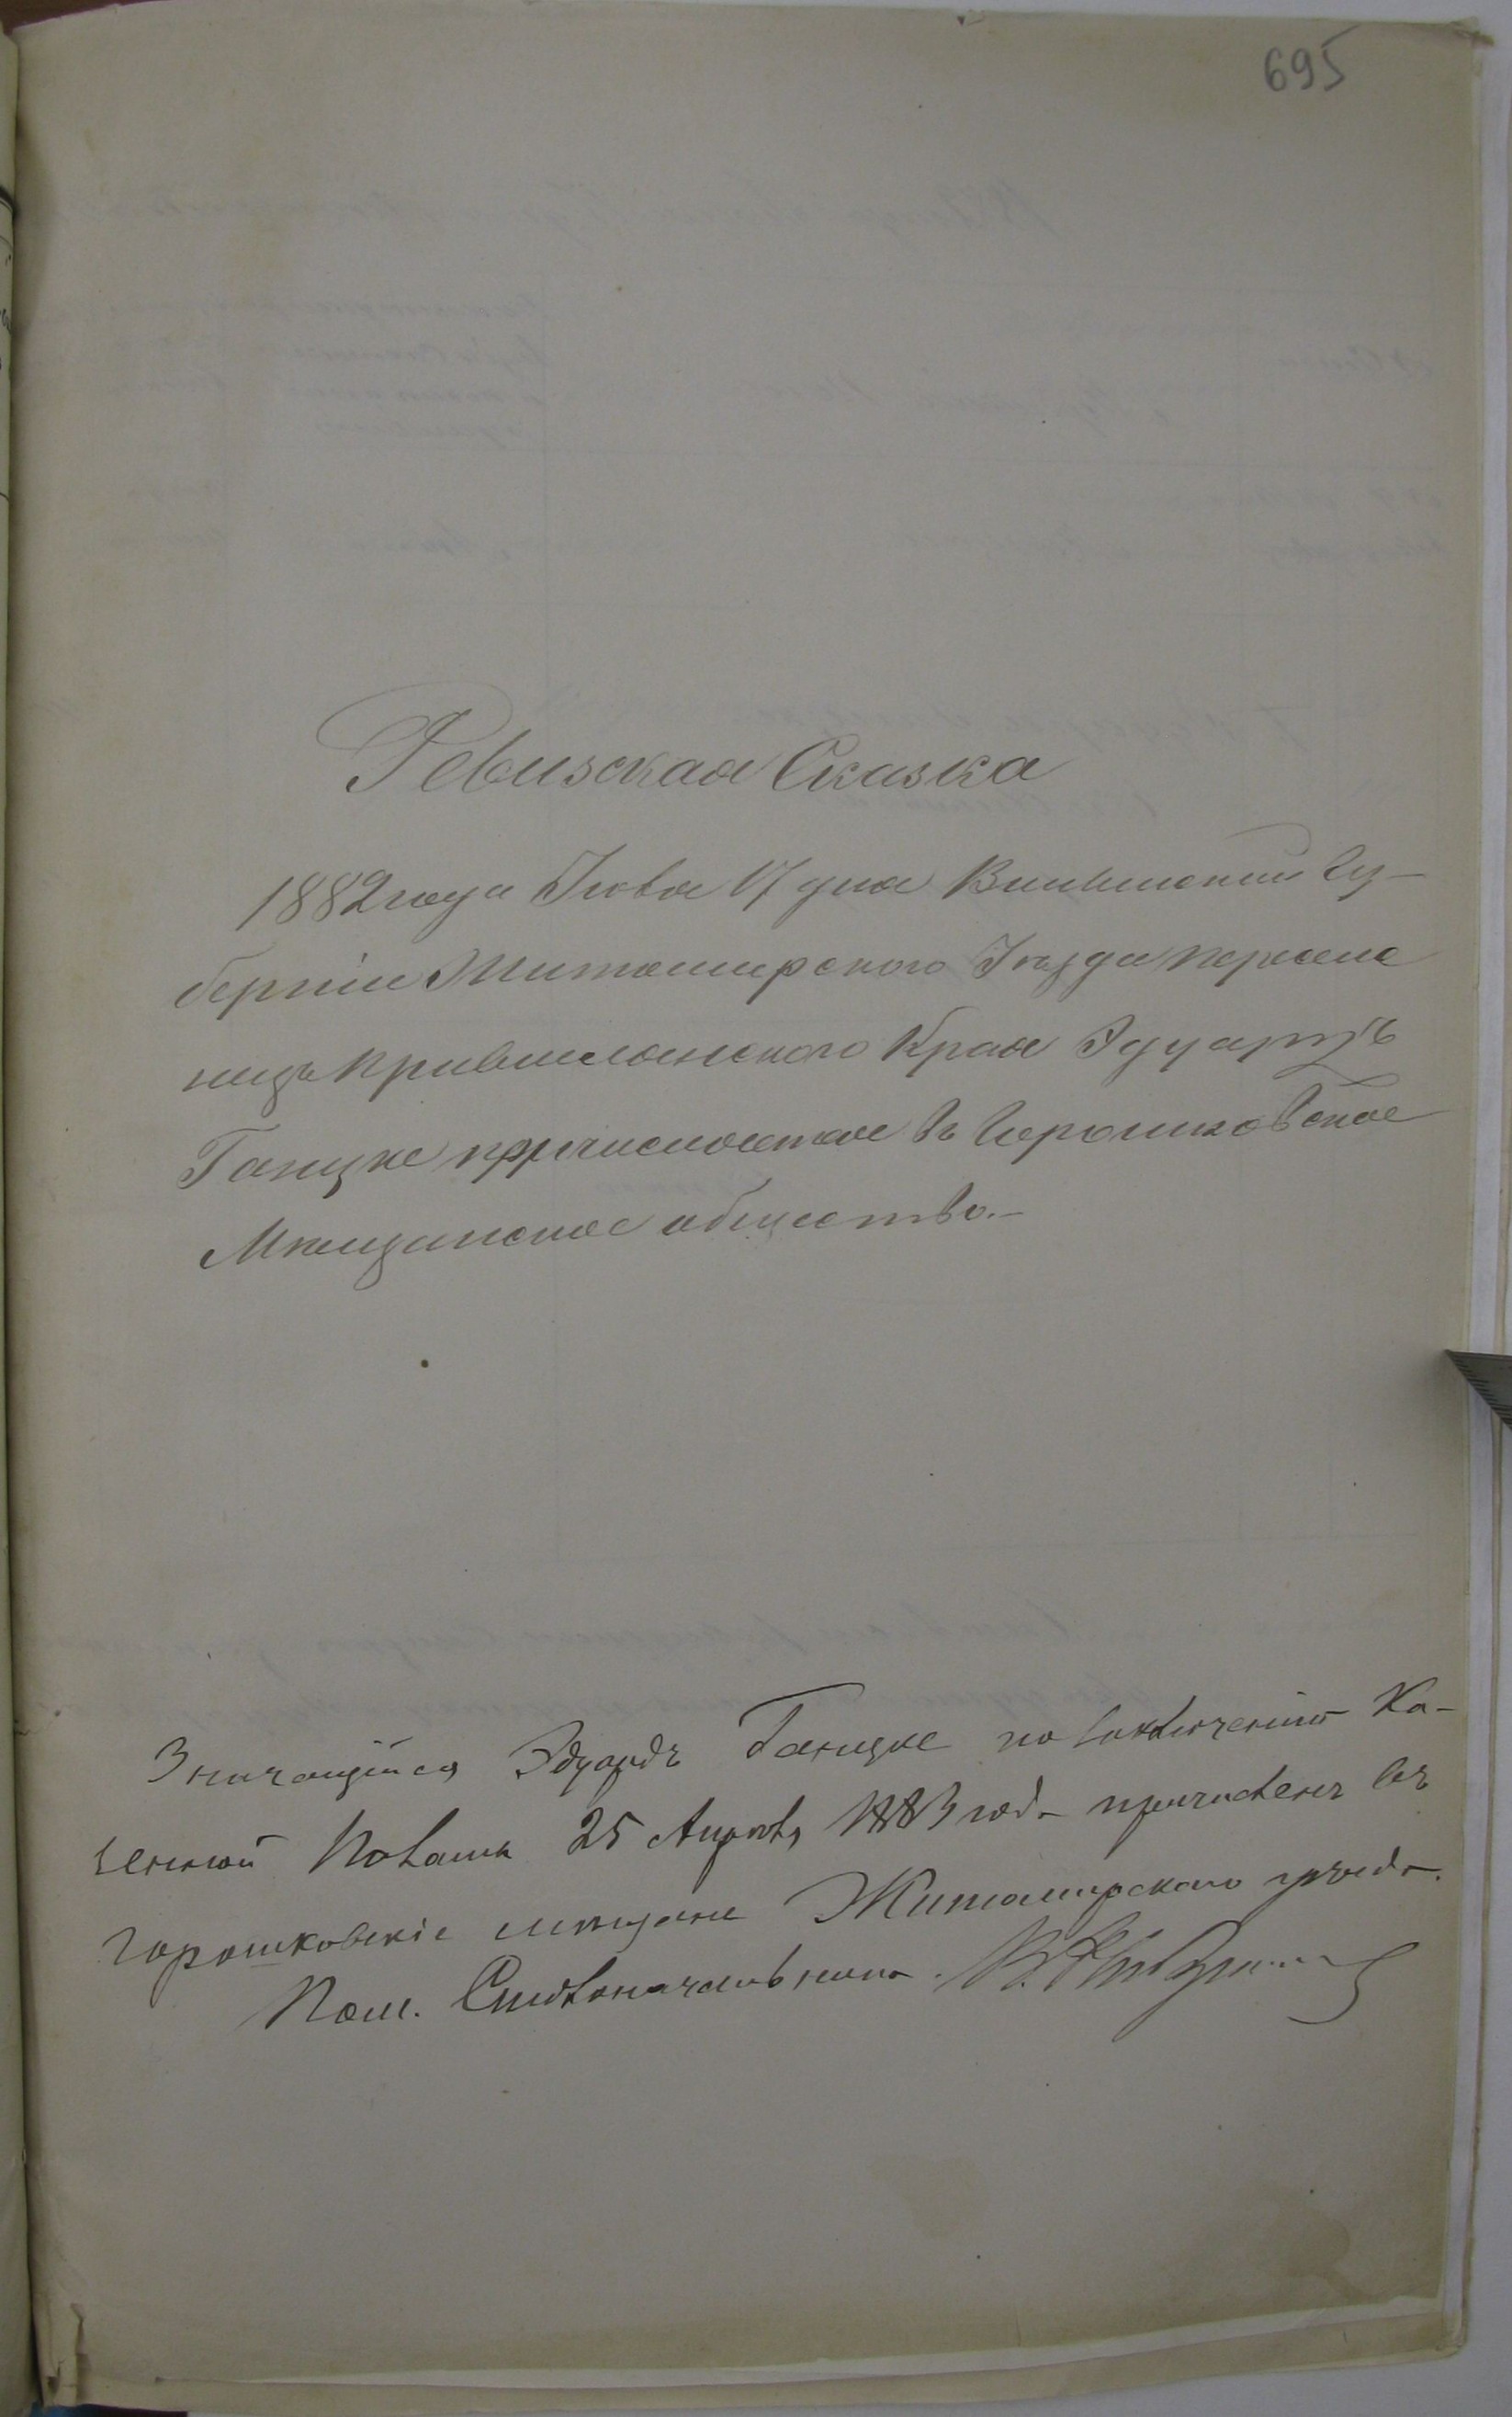 695
Ревизская Сказка
1882 года Іюля 17 дня Волынской Гу-
берніи Житомирского Уѣзда переселе
нецъ Привислянского Края Эдуардъ
Ганцке причисляемое въ Горошковское
Мѣщанское общество.-
Значащійся Эдуардъ Ганцке по заключенію Ка-
зенной Палаты 25 Апрѣля 1883 года причисленъ въ
Горошковскіе мѣщане Житомирскаго уѣзда.
Пом. Столоначальника